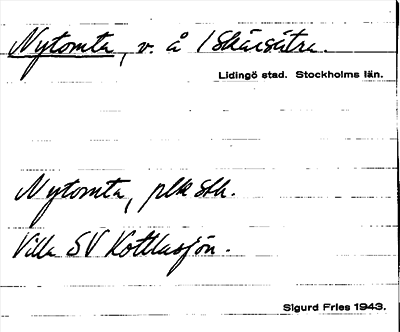 Nytomta, v. å 1 Skärsätra.
Lidingö stad. Stockholms län.
Nytomta, plk sth.
Villa SV Kottlasjön.
Sigurd Fries 1943.